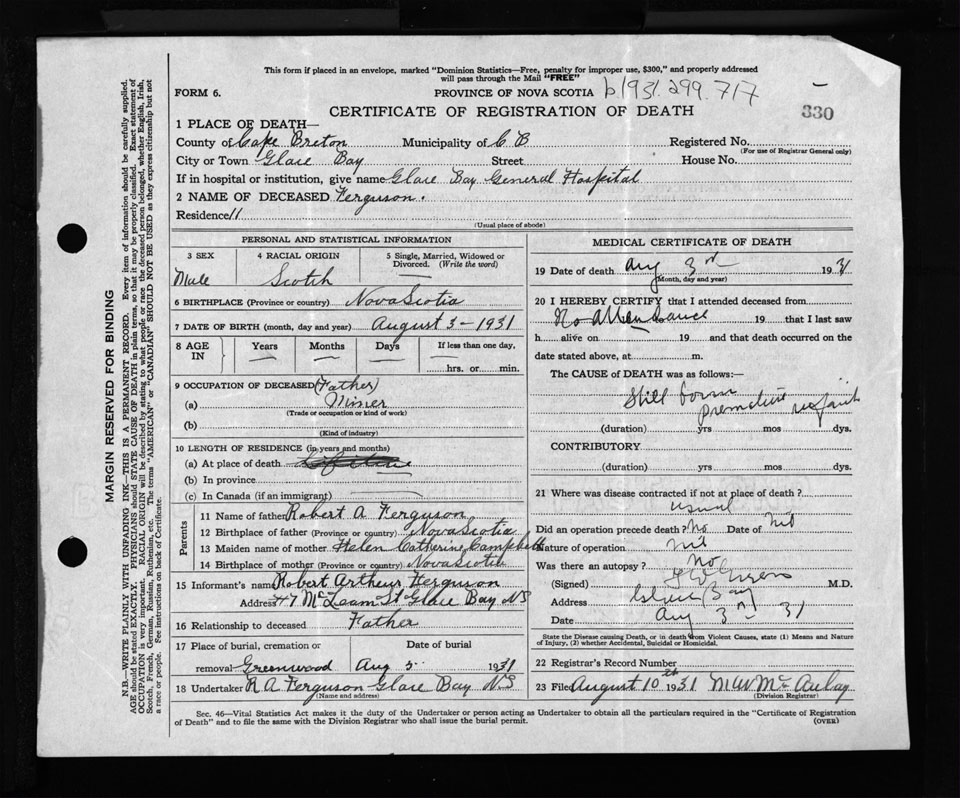 This form if placed in an envelope, marked "Dominion Statistics—Free, penalty for improper use, $300," and properly addressed
will pass through the Mail "FREE"
FORM 6.
PROVINCE OF NOVA SCOTIA b1931.299.717
330
CERTIFICATE OF REGISTRATION OF DEATH
1 PLACE OF DEATH—
County of Cape Breton Municipality of C B Registered No.
(For use of Registrar General only)
City or Town Glace Bay Street House No.
If in hospital or institution, give name Glace Bay General Hospital
2 NAME OF DECEASED Ferguson.
Residence 11
(Usual place of abode)
PERSONAL AND STATISTICAL INFORMATION
3 SEX 4 RACIAL ORIGIN 5 Single, Married, Widowed or
Divorced. (Write the word)
Male Scotch
6 BIRTHPLACE (Province or country) Nova Scotia
7 DATE OF BIRTH (month, day and year) August 3 - 1931
8 AGE IN Years Months Days If less than one day,
hrs. or min.
9 OCCUPATION OF DECEASED (Father)
(a) Miner
(Trade or occupation or kind of work)
(b)
(Kind of industry)
10 LENGTH OF RESIDENCE (in years and months)
(a) At place of death
(b) In province
(c) In Canada (if an immigrant)
Parents
11 Name of father Robert A Ferguson
12 Birthplace of father (Province or country) Nova Scotia
13 Maiden name of mother Helen Catherine Campbell
14 Birthplace of mother (Province or country) Nova Scotia
15 Informant's name Robert Arthur Ferguson
Address 47 McLean St Glace Bay NS
16 Relationship to deceased Father
17 Place of burial, cremation or Date of burial
removal Greenwood Aug 5 1931
18 Undertaker R A Ferguson Glace Bay NS
(Name and address)
MEDICAL CERTIFICATE OF DEATH
19 Date of death Aug 3rd 1931
(Month, day and year)
20 I HEREBY CERTIFY that I attended deceased from
No Attendance 19 that I last saw
h alive on 19 and that death occurred on the
date stated above, at m.
The CAUSE of DEATH was as follows:—
Still born
premature infant
(duration) yrs mos dys.
CONTRIBUTORY
(duration) yrs mos dys.
21 Where was disease contracted if not at place of death?
usual
Did an operation precede death? No Date of Nil
Nature of operation Nil
Was there an autopsy? No
(Signed) M.D.
Address Glace Bay
Date Aug 3rd 31
State the Disease causing Death, or in death from Violent Causes, state (1) Means and Nature
of Injury, (2) whether Accidental, Suicidal or Homicidal.
22 Registrar's Record Number
23 Filed August 10th 1931 M W McAulay
(Division Registrar)
Sec. 46—Vital Statistics Act makes it the duty of the Undertaker or person acting as Undertaker to obtain all the particulars required in the "Certificate of Registration
of Death" and to file the same with the Division Registrar who shall issue the burial permit.
(OVER)
MARGIN RESERVED FOR BINDING
N.B.—WRITE PLAINLY WITH UNFADING INK—THIS IS A PERMANENT RECORD. Every item of information should be carefully supplied.
AGE should be stated EXACTLY. PHYSICIANS should STATE CAUSE OF DEATH in plain terms, so that it may be properly classified. Exact statement of
OCCUPATION is very important. RACIAL ORIGIN will be described by stating to what people or race the deceased person belonged, whether English, Irish,
Scotch, French, German, Russian, Ruthenian, etc. The terms "AMERICAN" or "CANADIAN" SHOULD NOT BE USED as they express citizenship but not
a race or people. See instructions on back of Certificate.